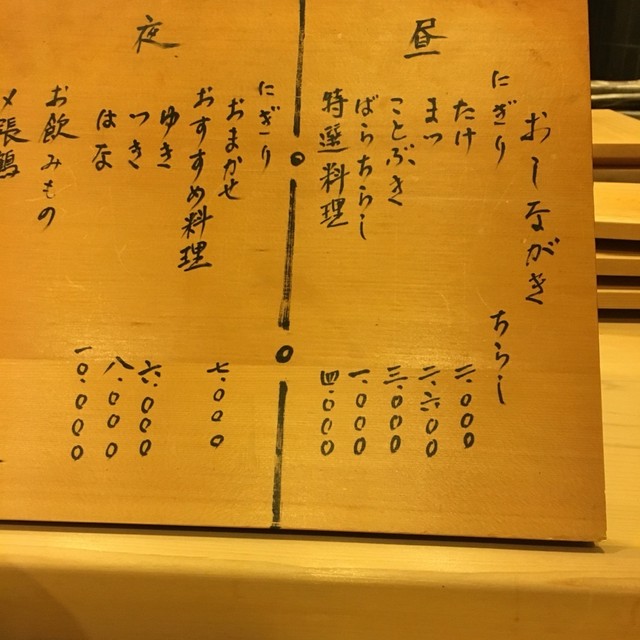 おしながき
昼
にぎり ちらし
たけ 二.〇〇〇
まつ 二.六〇〇
ことぶき 三.〇〇〇
ばらちらし 一.〇〇〇
特選料理 四.〇〇〇
夜
にぎり
おまかせ 七.〇〇〇
おすすめ料理
ゆき 六.〇〇〇
つき 八.〇〇〇
はな 一〇.〇〇〇
お飲みもの
〆張鶴